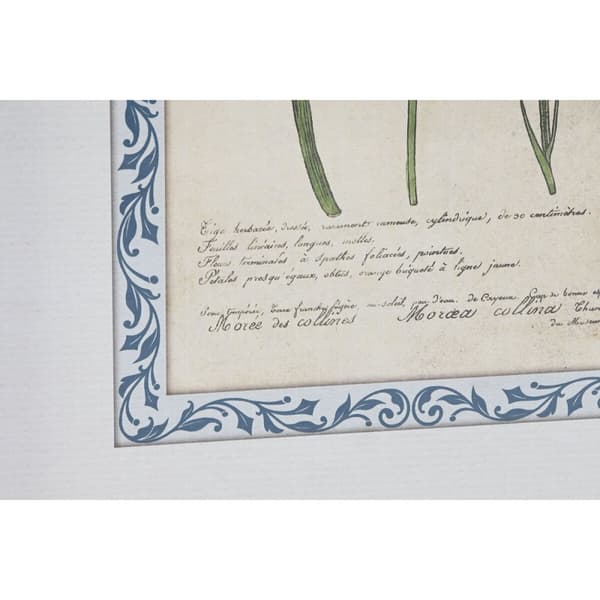 Tige herbacée, dressée, rarement rameuse, cylindrique, de 30 centimètres.
Feuilles linéaires, longues, molles.
Fleurs terminales à spathes foliacées, pointues.
Pétales presqu'égaux, obtus, orange briqueté à ligne jaune.
tempérée, Terre franche légère, au soleil, peu d'eau. de Cayeux.
Morée des collines Moræa collina Thun
du Museum